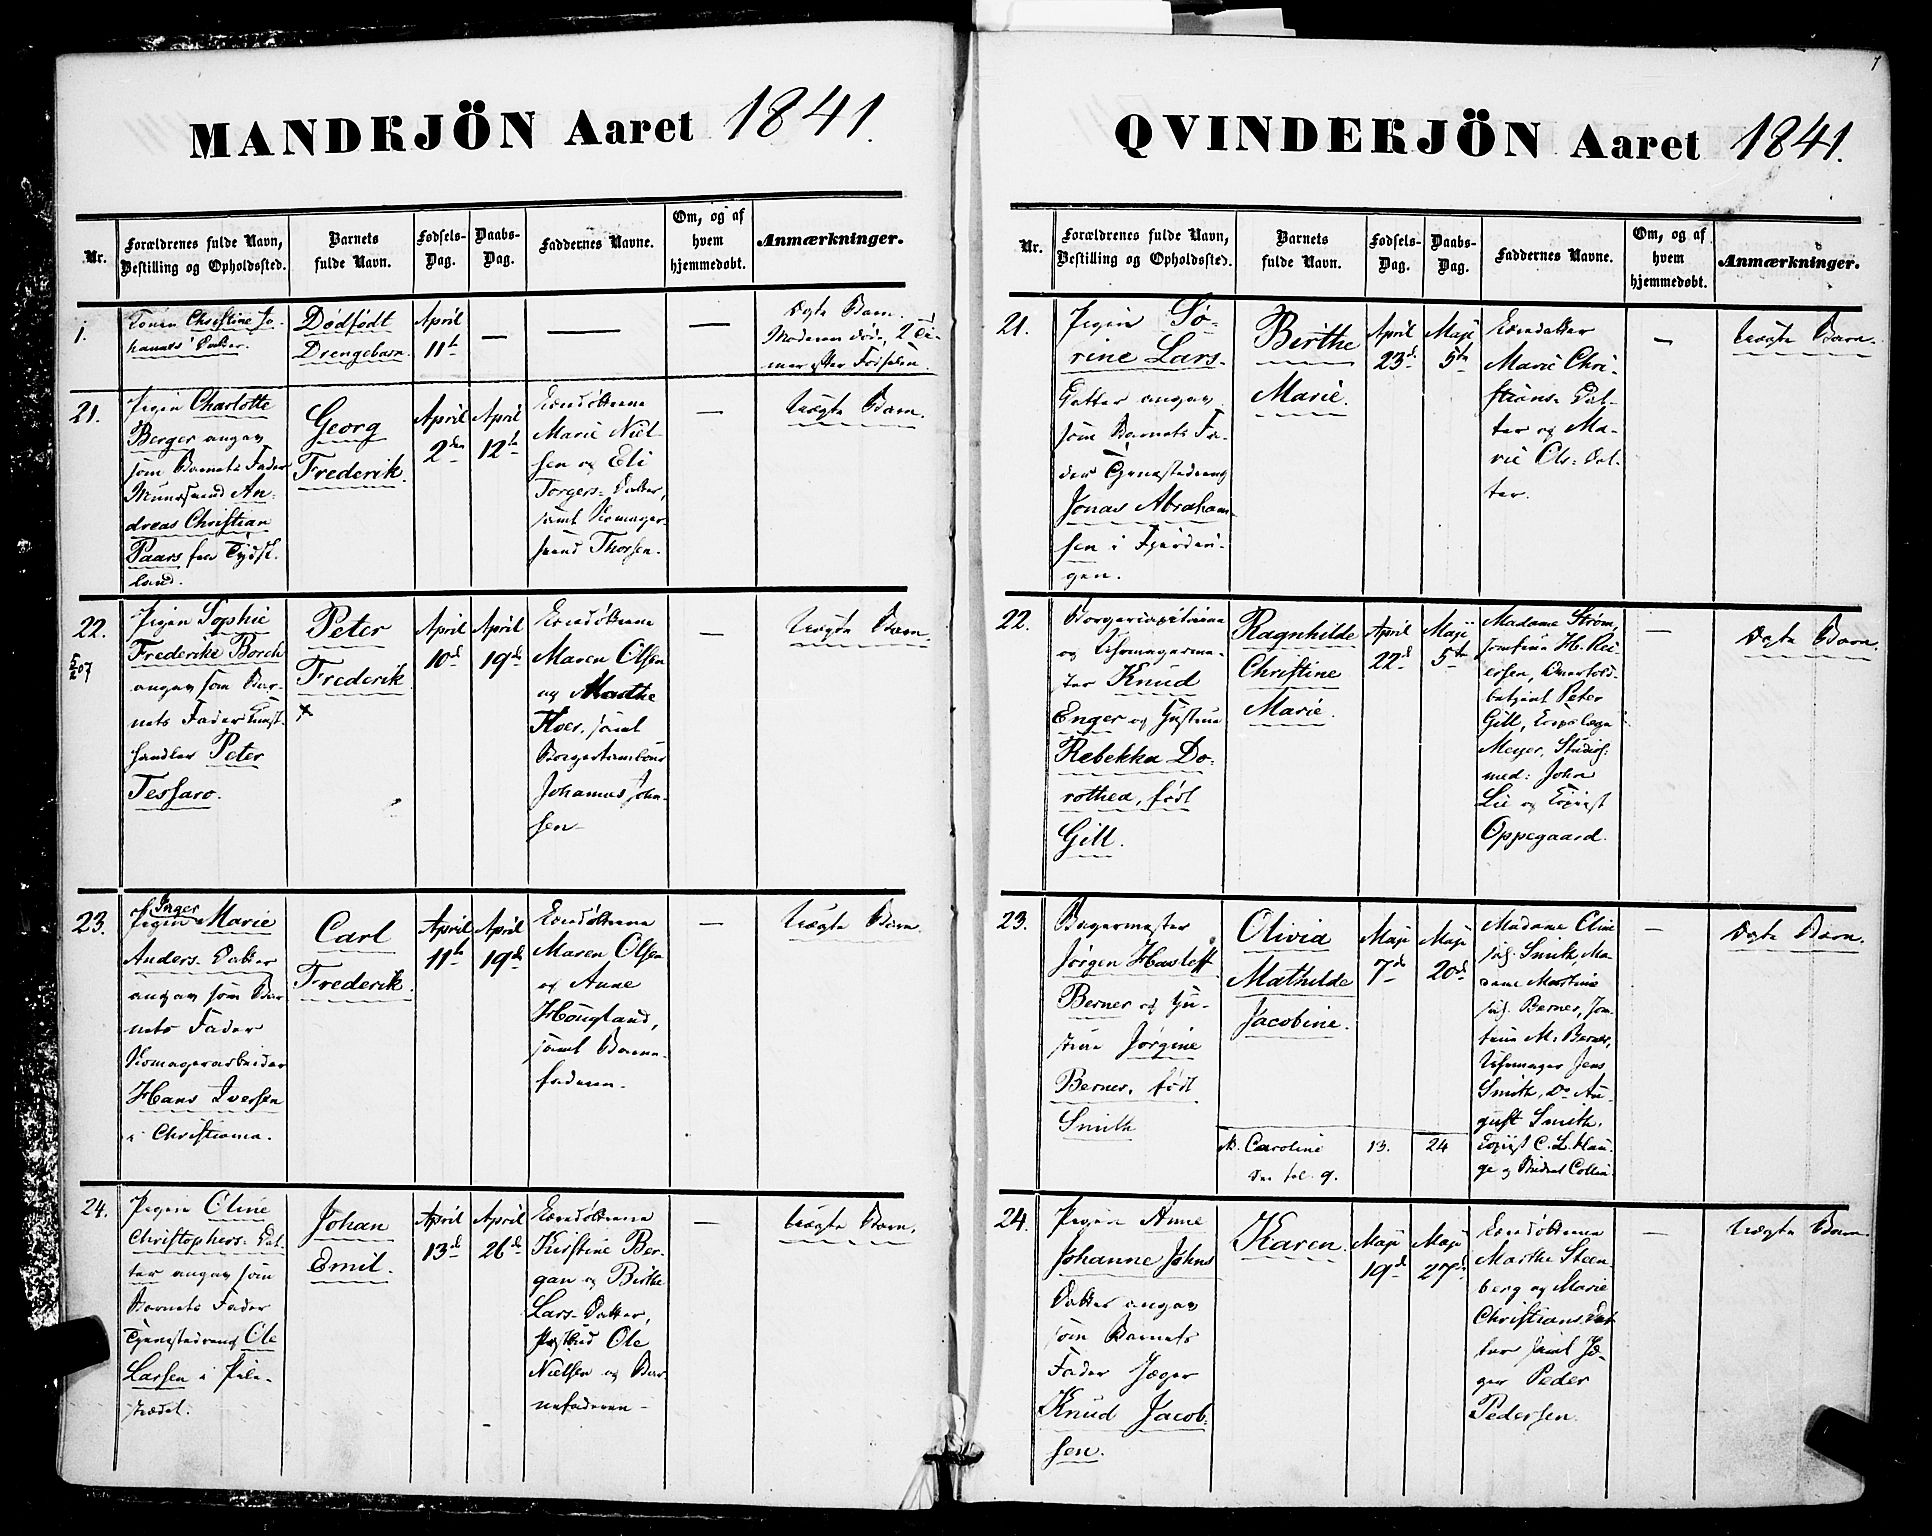 MANDKJÖN Aaret 1841.
Nr.
Forældrenes fulde Navn,
Bestilling og Opholdssted.
Barnets
fulde Navn.
Fødsels-
Dag.
Daabs-
Dag.
Faddernes Navne.
Om, og af
hvem
hjemmedøbt.
Anmærkninger.
1.
Konen Christine Jo-
hanats' Datter.
Dødfødt
Drengebarn.
April
11te
—
—
—
Ægte Barn.
Moderen døde, 2 Ti-
mer efter Fødselen.
21.
Pigen Charlotte
Berger angav
som Barnets Fader
Muursvend An-
dreas Christian
Paars fra Tydsk-
land.
Georg
Frederik.
April
2den
April
12te
Eensdøttrene
Marie Niel-
sen og Eli
Torgers-Datter,
samt
svend Thorsen.
—
Uægte Barn.
22.
5/207
Pigen Sophie
Frederikke Borch
angav som Bar-
nets Fader Kunst-
handler Peter
Tessaro.
Peter
Frederik
x
April
10de
April
19de
Maren Olsen
og Marthe
Floer, samt
Borgertambour
Johannes Johan-
sen.
—
Uægte Barn.
23.
Pigen Inger Marie
Anders-Datter
angav som Bar
nets Fader
Hans Iversen
i Christiania.
Carl
Frederik.
April
11te
April
19de
Maren Olsen
og Anne
Hougland,
samt Barne-
faderen.
—
Uægte Barn.
24.
Pigen Oline
Christophers-Dat-
ter angav som
Barnets Fader
Tjenestedreng Ole
Larsen i Pile-
strædet.
Johan
Emil.
April
13de
April
26de
Kirstine Ber-
gan og Birthe
Lars-Datter,
Ole
Nielsen og Bar
nefaderen.
—
Uægte Barn.
7
QVINDEKJÖN Aaret 1841.
Nr.
Forældrenes fulde Navn,
Bestilling og Opholdssted.
Barnets
fulde Navn.
Fødsels-
Dag.
Daabs-
Dag.
Faddernes Navne.
Om, og af
hvem
hjemmedøbt.
Anmærkninger.
21.
Pigen Sø-
rine Lars-
Datter angav
som Barnets Fa-
der Tjenestedreng
Jonas Abraham-
sen i Fjerdin-
gen.
Birthe
Marie.
April
23de
Maji
5te
Marie Chri-
stians-Dat-
ter og Ma-
rie Ols-Dat-
ter.
—
Uægte Barn.
22.
Borgercapitaine
og Uhrmagerme-
ster Knud
Enger og Hustrue
Rebekka Do-
rothea, født
Gill.
Ragnhilde
Christine
Marie.
April
22de
Maji
5te
Madame Strøm,
Jomfrue H. Rei
ersen,
betjent Peter
Gill, Corpslæge
Meyer, Studios.
med: John
Lie og Copiist
Oppegaard.
—
Ægte Barn.
23.
Bagermester
Jørgen Hasleff
Berner og Hu-
strue Jørgine
Berner, født
Smith
Olivia
Mathilde
Jacobine.
Maji
7de
Maji
20de
Madame Oline
Smith, Ma-
dame Martine
Berner, Jom
frue M. Berner,
Uhrmager Jens
Smith, Do Au-
gust Smith,
Copiist C. L. Hau-
ge og Student Collin
—
Ægte Barn.
N. Caroline
See fol. 9.
13.
24
24.
Pigen Anne
Johanne Johns
Datter angav
som Barnets
Fader Jæger
Knud Jacob-
sen.
Karen.
Maji
19de
Maji
27de
Marthe Steen-
berg og Marie
Christians-Dat
ter samt Jæ-
ger Peder
Pedersen.
—
Uægte Barn.